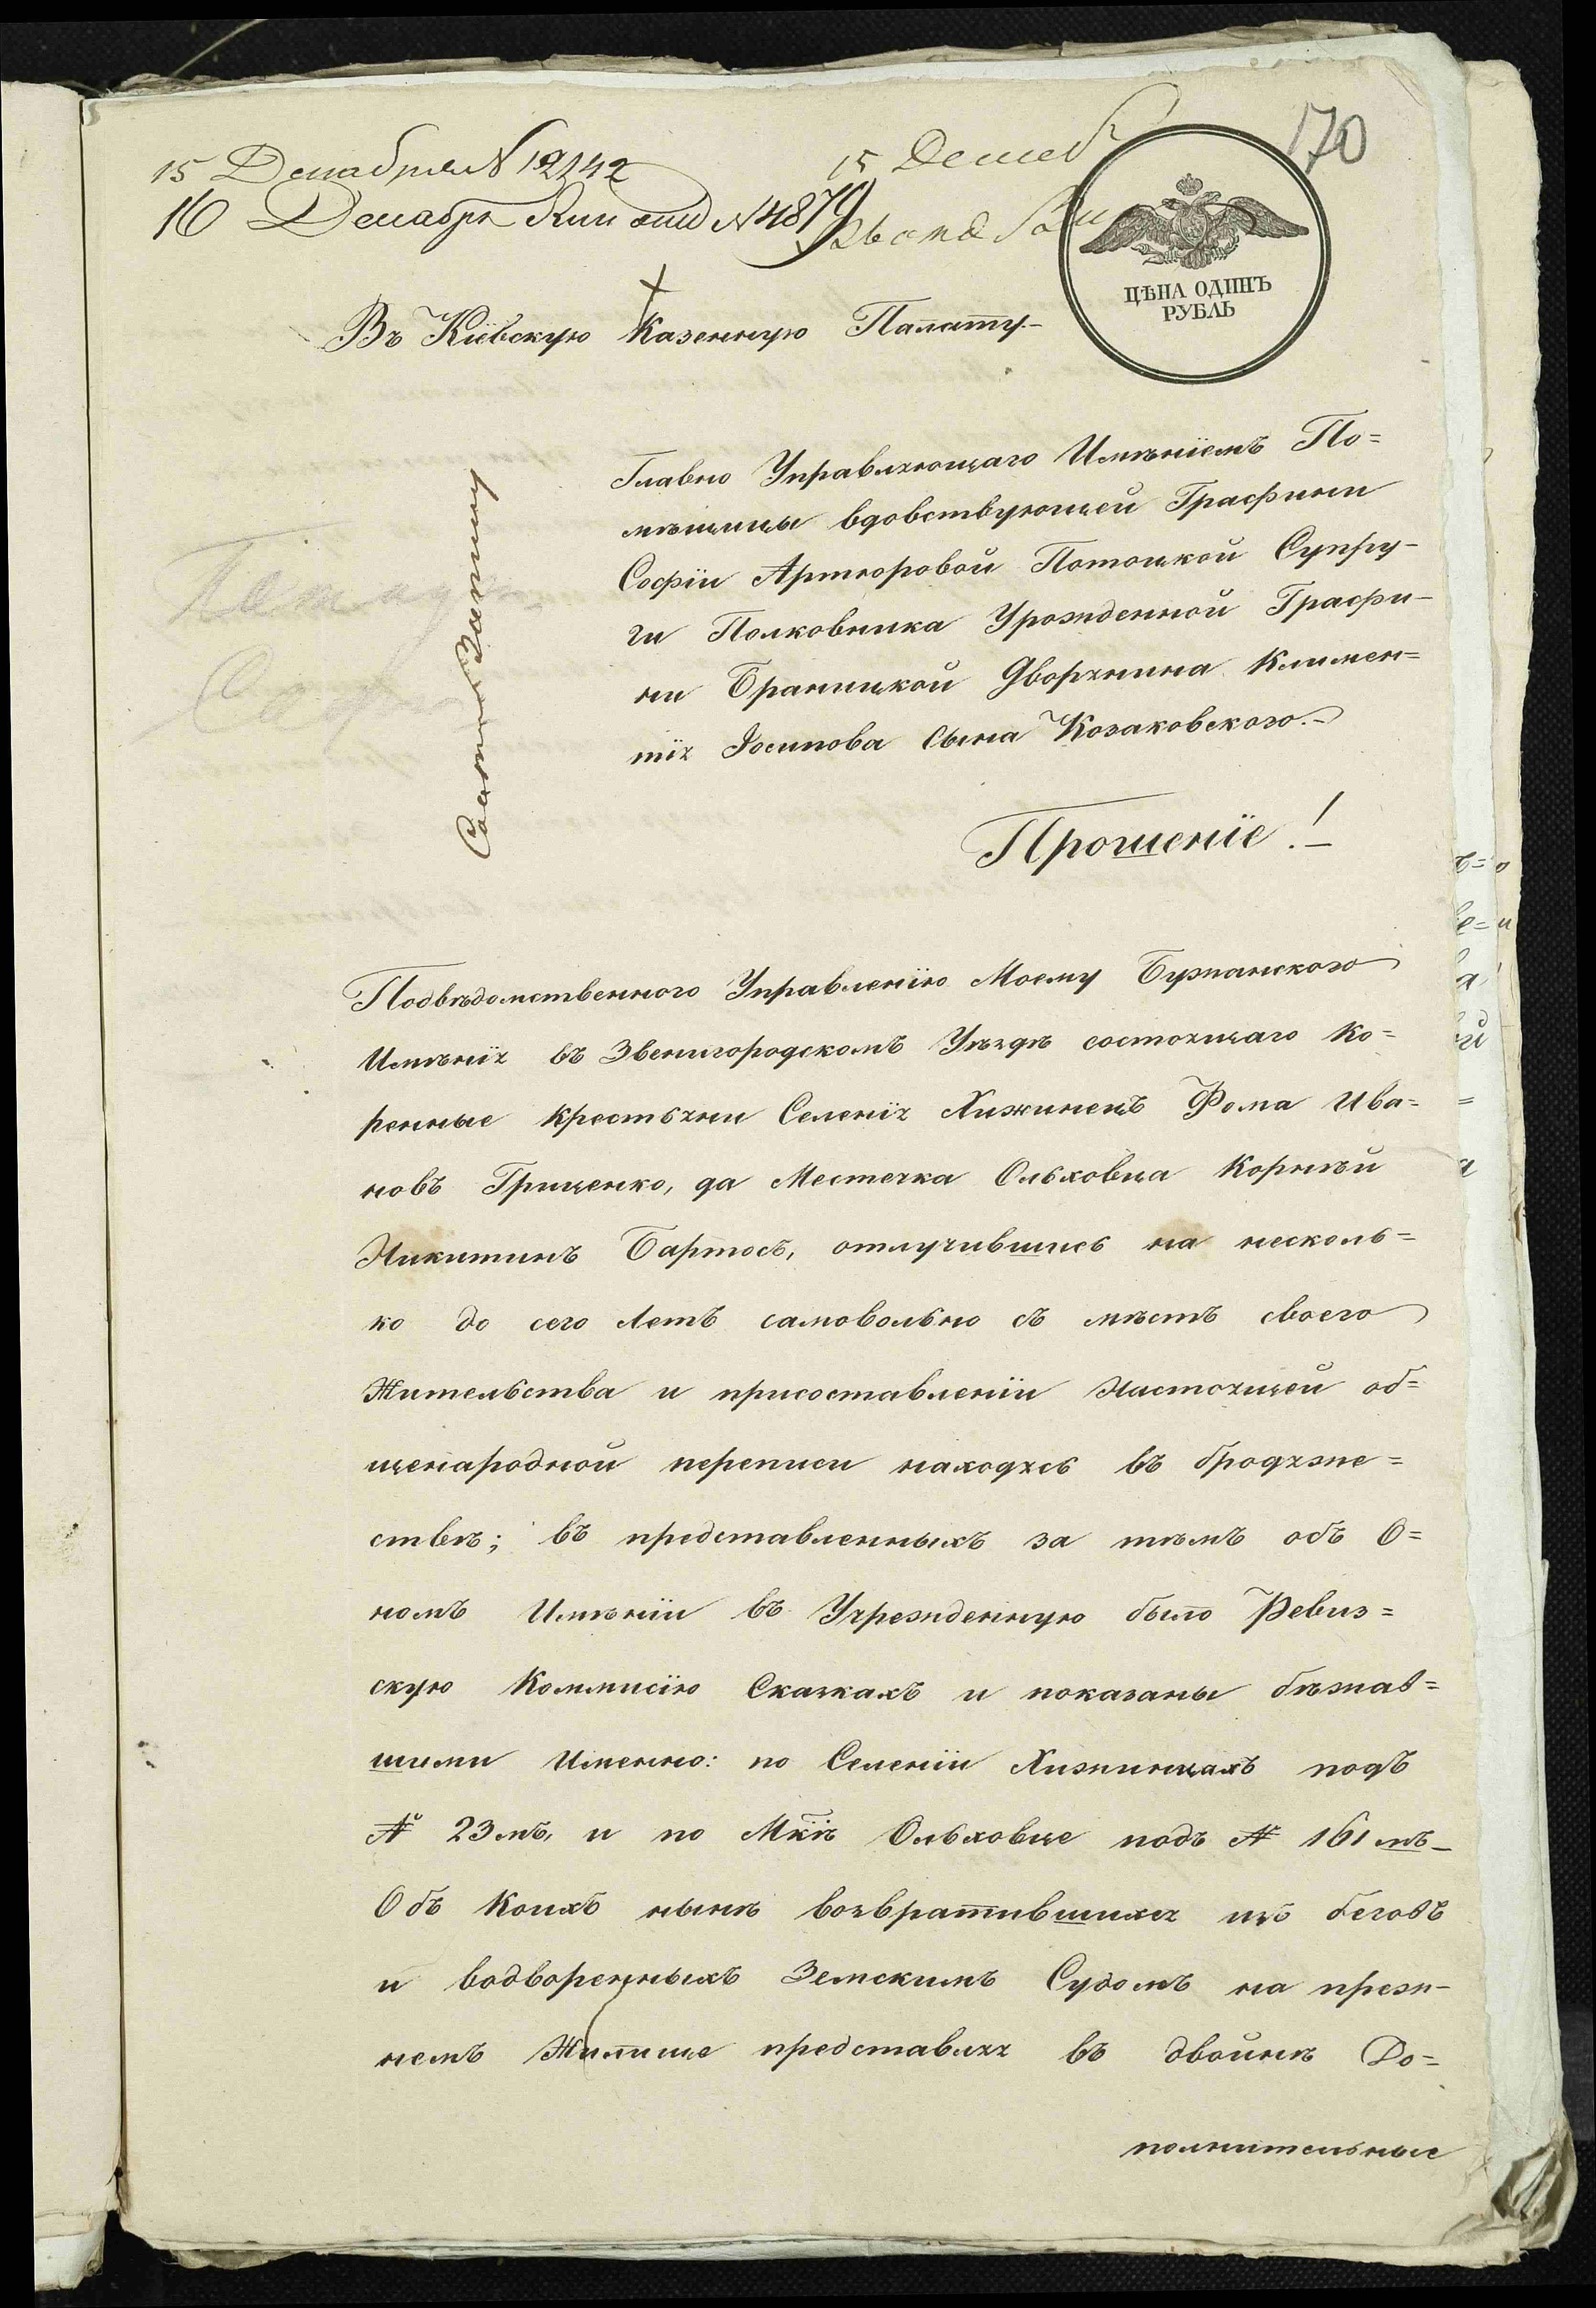 170
15 Декабря № 12142
16 Декабря № 4879
15 Декаб
ЦѢНА ОДИНЪ
РУБЛЬ
Въ Кіевскую Казенную Палату.-
Главно Управляющаго Имѣніемъ По=
мѣщицы вдовствующей Графини
Софіи Артюровой Потоцкой Супру-
ги Полковника Урожденной Графи-
ни Браницкой Дворянина Климен=
тія Іосипова Сына Козаковского.-
Прошеніе!-
Подвѣдомственного Управленію Моему Бужанского
Имѣнія въ Звенигородскомъ Уѣздѣ состоящаго Ко=
ренные крестьяни Селенія Хижинецъ Фома Ива=
новъ Гриценко, да Местечка Ольховца Корнѣй
Никитинъ Бартосъ, отлучившись на несколь=
ко до сего Летъ самовольно съ мѣстъ своего
Жительства и присоставленіи Настоящей об=
щенародной переписи находясь въ бродяже=
ствѣ; въ представленныхъ за тѣмъ объ О=
номъ Имѣніи въ Учрежденную было Ревиз=
скую Коммисію Сказкахъ и показаны бѣжав=
шими Именно: по Селеніи Хижинцахъ подъ
№ 23мъ, и по Мкѣ Ольховце подъ № 161мъ-
Объ Коихъ нынѣ возвратившихся изъ беговъ
и водворенныхъ Земскимъ Судомъ на преж-
немъ Жилище представляя въ двойнѣ До=
полнительные